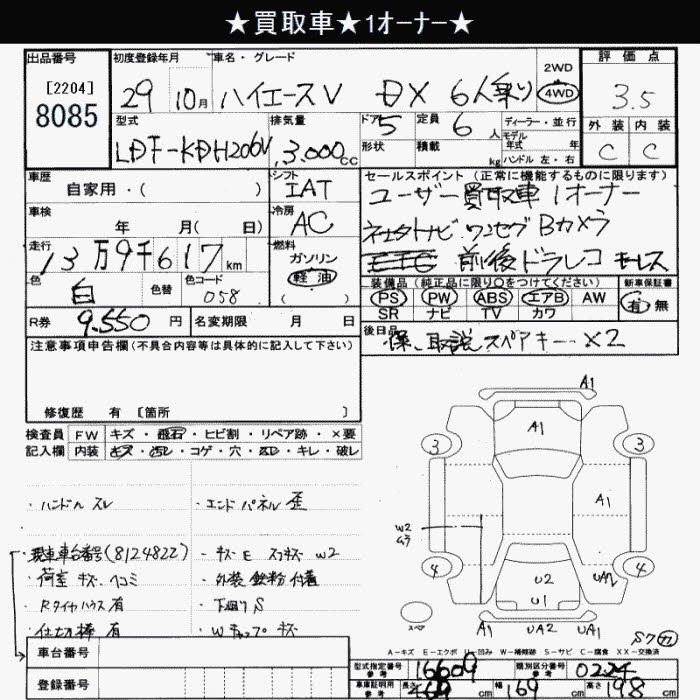 ★買取車★1オーナー★
出品番号
[2204]
8085
初度登録年月
29 10月
車名・グレード
ハイエースV DX 6人乗り
2WD
4WD
評価点
3.5
外装 内装
C C
型式
LDF-KDH206V
排気量
3,000cc
ドア 5
形状
定員 6人
積載 kg
ディーラー・並行
モデル年式 年式
ハンドル 左・右
車歴
自家用・( )
シフト
IAT
セールスポイント (正常に機能するものに限ります)
ユーザー買取車 1オーナー
ナビ ワンセグ Bカメラ
前後ドラレコ キーレス
車検
年 月( 日)
冷房
AC
走行
13万9千617km
燃料
ガソリン
軽油
( )
色
白
色替
色コード
058
装備品 (純正品に限り○をつけてください)
PS PW ABS エアB AW
SR ナビ TV カワ
新車保証書
有 無
R券 9.550 円
名変期限 月 日
後日品
保、取説 スペアキー×2
注意事項申告欄 (不具合内容等は具体的に記入して下さい)
修復歴 有 [箇所 ]
検査員記入欄
FW キズ・飛石・ヒビ割・リペア跡・×要
内装 キズ・汚レ・コゲ・穴・ヌレ・キレ・破レ
・ハンドル スレ
・エンドパネル 歪
・現車車台番号(8124822)
・キズ E スリキズ W2
・荷室 キズ ヘコミ
・外装 鉄粉 付着
・Rタイヤハウス 有
・下廻り S
・仕切棒 有
・Wキャップ キズ
車台番号
登録番号
A1
A1
3 3
A1
W2
ムラ
4 4
U2
UA2
U1
スペア
A1 UA2 U1
S7
A-キズ E-エクボ U-凹み W-補修跡 S-サビ C-腐食 XX-交換済
型式指定番号 参考
16609
類別区分番号 参考
0224
車庫証明用 参考
長さ 469 cm
幅 169 cm
高さ 198 cm